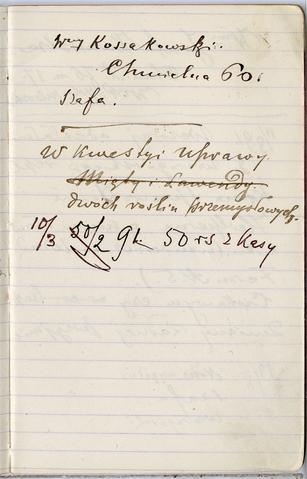 Wny Kossakowski.
Chmielna 60.
szafa.
W kwestyi uprawy
Mięty i Lawendy
dwóch roślin przemysłowych.
10/3 50/2 9 k. 50 rs z Kasy